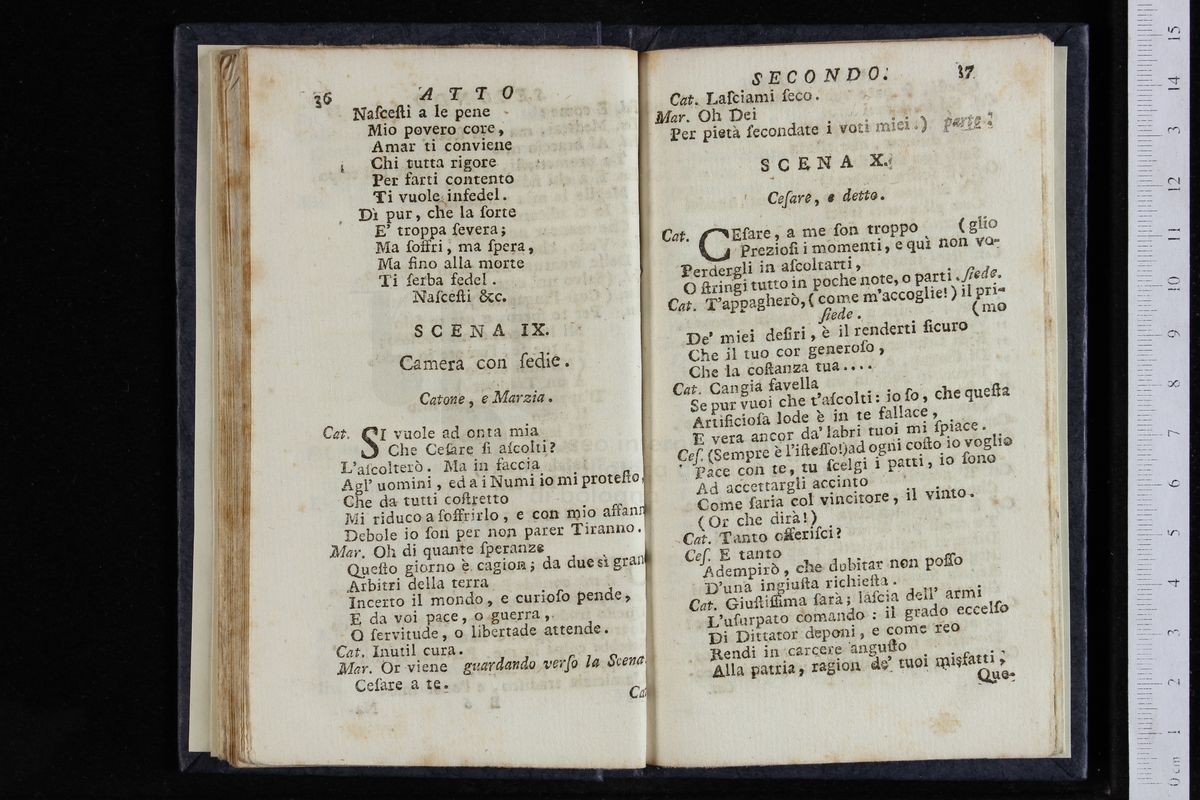 36 ATTO
Naſceſti a le pene
Mio povero core,
Amar ti conviene
Chi tutta rigore
Per farti contento
Ti vuole infedel.
Di pur, che la ſorte
E' troppa ſevera;
Ma ſoffri, ma ſpera,
Ma fino alla morte
Ti ſerba fedel.
Naſceſti &c.
SCENA IX.
Camera con ſedie.
Catone, e Marzia.
Cat. SI vuole ad onta mia
Che Ceſare ſi aſcolti?
L'aſcolterò. Ma in faccia
Agl' uomini, ed a i Numi io mi proteſto,
Che da tutti coſtretto
Mi riduco a ſoffrirlo, e con mio affann
Debole io ſon per non parer Tiranno.
Mar. Oh di quante ſperanze
Queſto giorno è cagion; da due sì gran
Arbitri della terra
Incerto il mondo, e curioſo pende,
E da voi pace, o guerra,
O ſervitude, o libertade attende.
Cat. Inutil cura.
Mar. Or viene guardando verſo la Scena
Ceſare a te.
Cat
SECONDO. 37
Cat. Laſciami ſeco.
Mar. Oh Dei
Per pietà ſecondate i voti miei.) parte.
SCENA X.
Ceſare, e detto.
Cat. CEſare, a me ſon troppo (glio
Prezioſi i momenti, e quì non vo-
Perdergli in aſcoltarti,
O ſtringi tutto in poche note, o parti. ſiede.
Cat. T'appagherò, (come m'accoglie!) il pri-
ſiede. (mo
De' miei deſiri, è il renderti ſicuro
Che il tuo cor generoſo,
Che la coſtanza tua....
Cat. Cangia favella
Se pur vuoi che t'aſcolti: io ſo, che queſta
Artificioſa lode è in te fallace,
E vera ancor da' labri tuoi mi ſpiace.
Ceſ. (Sempre è l'iſteſſo!) ad ogni coſto io voglio
Pace con te, tu ſcelgi i patti, io ſono
Ad accettargli accinto
Come faria col vincitore, il vinto.
(Or che dirà!)
Cat. Tanto offeriſci?
Ceſ. E tanto
Adempirò, che dubitar non poſſo
D'una ingiuſta richieſta.
Cat. Giuſtiſſima ſarà; laſcia dell' armi
L'uſurpato comando: il grado eccelſo
Di Dittator deponi, e come reo
Rendi in carcere anguſto
Alla patria, ragion de' tuoi misfatti;
Que-
0 cm 1 2 3 4 5 6 7 8 9 10 11 12 13 14 15